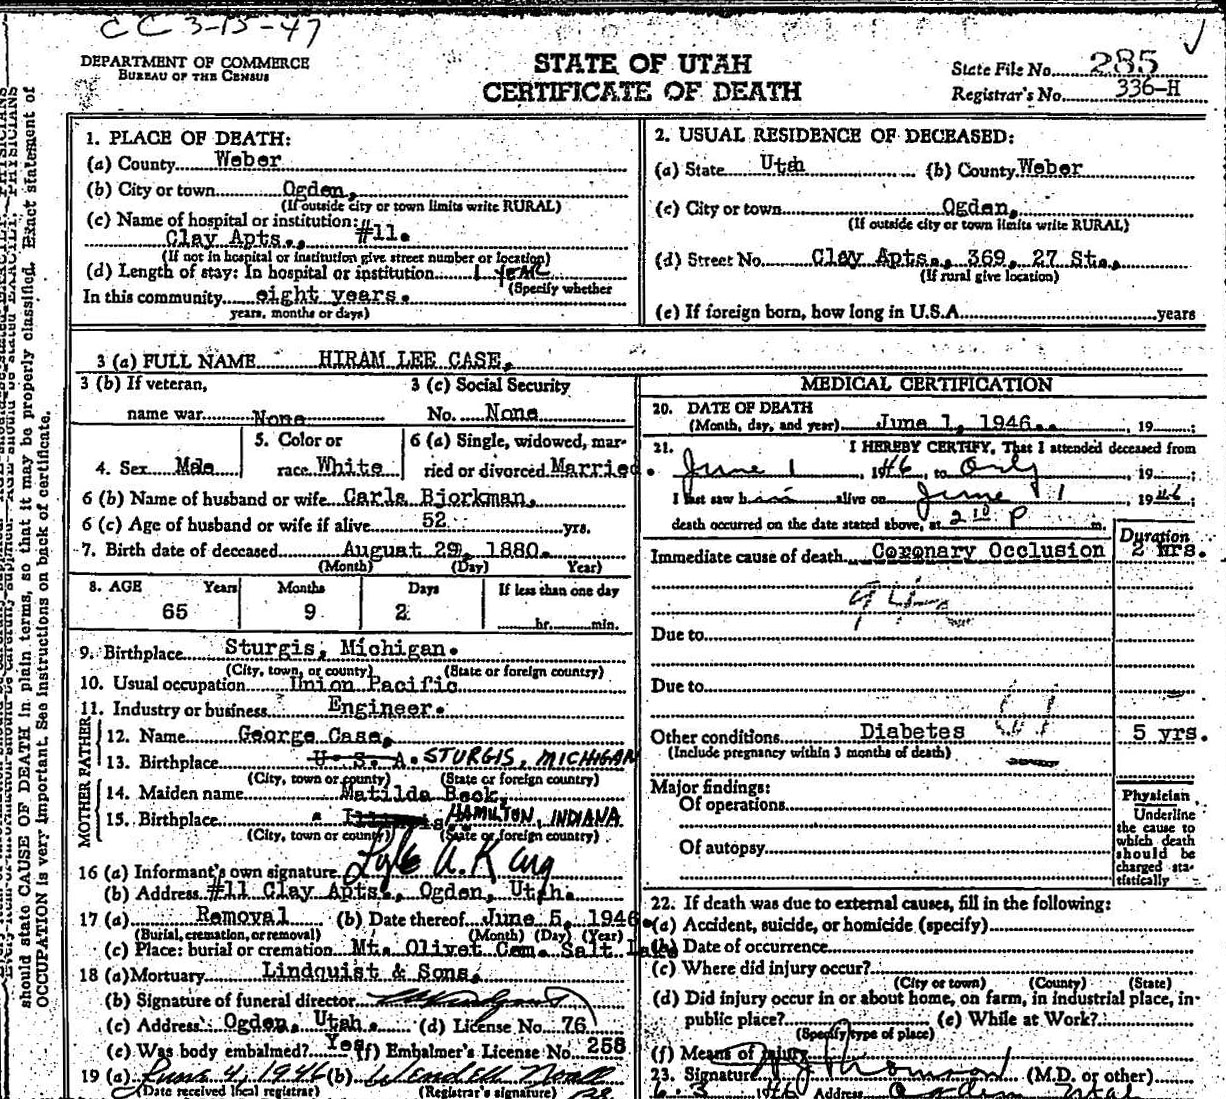 CC 3-13-47
DEPARTMENT OF COMMERCE
BUREAU OF THE CENSUS
STATE OF UTAH
CERTIFICATE OF DEATH
State File No. 285
Registrar's No. 336-H
should state CAUSE OF DEATH in plain terms, so that it may be properly classified. Exact statement of
OCCUPATION is very important. See instructions on back of certificate.
1. PLACE OF DEATH:
(a) County Weber
(b) City or town Ogden,
(If outside city or town limits write RURAL)
(c) Name of hospital or institution:
Clay Apts., #11.
(If not in hospital or institution give street number or location)
(d) Length of stay: In hospital or institution 1 year
(Specify whether
In this community eight years.
years, months or days)
2. USUAL RESIDENCE OF DECEASED:
(a) State Utah (b) County Weber
(c) City or town Ogden,
(If outside city or town limits write RURAL)
(d) Street No. Clay Apts., 369, 27 St.,
(If rural give location)
(e) If foreign born, how long in U.S.A. years
3 (a) FULL NAME HIRAM LEE CASE,
3 (b) If veteran,
name war None
3 (c) Social Security
No. None
4. Sex Male
5. Color or
race White
6 (a) Single, widowed, mar-
ried or divorced Married.
6 (b) Name of husband or wife Carla Bjorkman,
6 (c) Age of husband or wife if alive 52 yrs.
7. Birth date of deceased August 29, 1880.
(Month) (Day) Year)
8. AGE Years Months Days If less than one day
65 9 2 hr. min.
9. Birthplace Sturgis, Michigan.
(City, town, or county) (State or foreign country)
10. Usual occupation Union Pacific
11. Industry or business Engineer.
FATHER
12. Name George Case,
13. Birthplace U. S. A. STURGIS, MICHIGAN
(City, town or county) (State or foreign country)
MOTHER
14. Maiden name Matilda Beck,
15. Birthplace HAMILTON, INDIANA
(City, town or county) (State or foreign country)
16 (a) Informant's own signature
(b) Address #11 Clay Apts., Ogden, Utah.
17 (a) Removal (b) Date thereof June 5, 1946.
(Burial, cremation, or removal) (Month) (Day) (Year)
(c) Place: burial or cremation Mt. Olivet Cem. Salt Lake
18 (a) Mortuary Lindquist & Sons,
(b) Signature of funeral director
(c) Address Ogden, Utah. (d) License No. 76
(e) Was body embalmed? Yes (f) Embalmer's License No. 258
19 (a) June 4, 1946 (b) Wendell
(Date received local registrar) (Registrar's signature)
MEDICAL CERTIFICATION
20. DATE OF DEATH
(Month, day, and year) June 1, 1946. , 19 ;
21. I HEREBY CERTIFY, That I attended deceased from
June 1 , 1946, to only , 19 ;
I last saw him alive on June 1 , 1946
death occurred on the date stated above, at 2 10 P m.
Duration
Immediate cause of death Coronary Occlusion 2 hrs.
Due to
Due to
Other conditions Diabetes 5 yrs.
(Include pregnancy within 3 months of death)
Major findings:
Of operations
Of autopsy
Physician
Underline
the cause to
which death
should be
charged sta-
tistically
22. If death was due to external causes, fill in the following:
(a) Accident, suicide, or homicide (specify)
(b) Date of occurrence
(c) Where did injury occur?
(City or town) (County) (State)
(d) Did injury occur in or about home, on farm, in industrial place, in-
public place? (e) While at Work?
(Specify type of place)
(f) Means of injury
23. Signature Thomson (M.D. or other)
6-3 1946 Address Ogden Utah